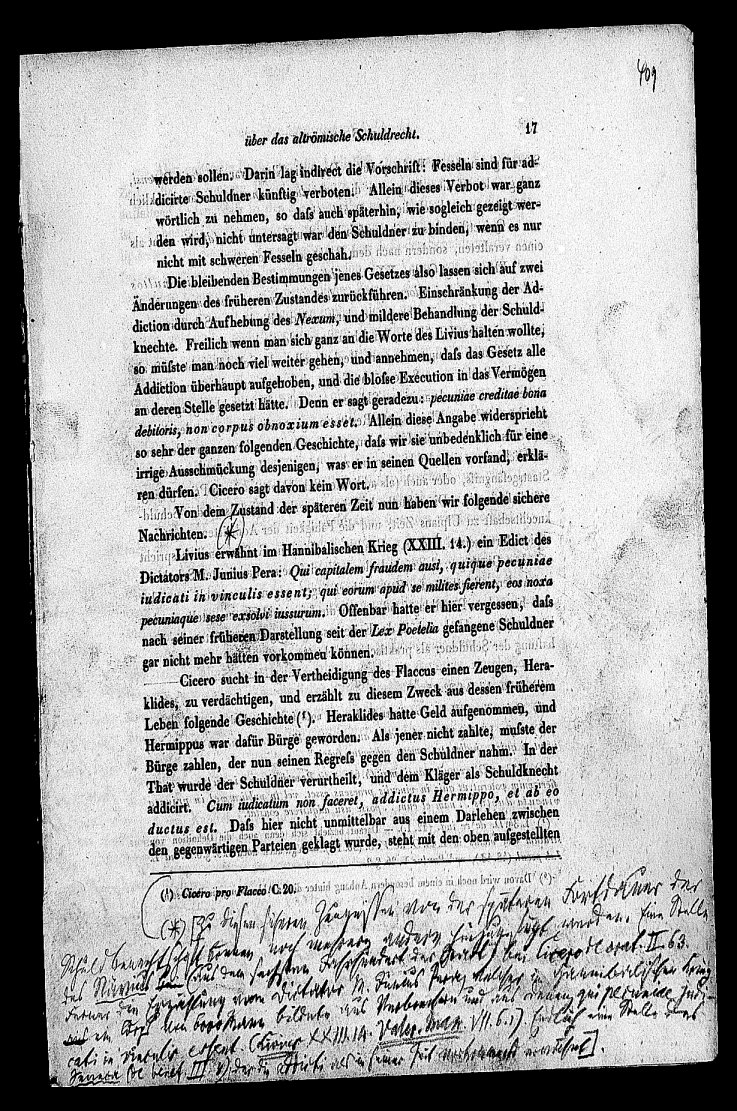 409
über das altrömische Schuldrecht. 17
werden sollen. Darin lag indirect die Vorschrift: Fesseln sind für ad-
dicirte Schuldner künftig verboten. Allein dieses Verbot war ganz
wörtlich zu nehmen, so daſs auch späterhin, wie sogleich gezeigt wer-
den wird, nicht untersagt war den Schuldner zu binden, wenn es nur
nicht mit schweren Fesseln geschah.
Die bleibenden Bestimmungen jenes Gesetzes also lassen sich auf zwei
Änderungen des früheren Zustandes zurückführen. Einschränkung der Ad-
diction durch Aufhebung des Nexum, und mildere Behandlung der Schuld-
knechte. Freilich wenn man sich ganz an die Worte des Livius halten wollte,
so müſste man noch viel weiter gehen, und annehmen, daſs das Gesetz alle
Addiction überhaupt aufgehoben, und die bloſse Execution in das Vermögen
an deren Stelle gesetzt hätte. Denn er sagt geradezu: pecuniae creditae bona
debitoris, non corpus obnoxium esset. Allein diese Angabe widerspricht
so sehr der ganzen folgenden Geschichte, daſs wir sie unbedenklich für eine
irrige Ausschmückung desjenigen, was er in seinen Quellen vorfand, erklä-
ren dürfen. Cicero sagt davon kein Wort.
Von dem Zustand der späteren Zeit nun haben wir folgende sichere
Nachrichten. (*)
Livius erwähnt im Hannibalischen Krieg (XXIII. 14.) ein Edict des
Dictators M. Junius Pera: Qui capitalem fraudem ausi, quique pecuniae
iudicati in vinculis essent, qui eorum apud se milites fierent, eos noxa
pecuniaque sese exsolvi iussurum. Offenbar hatte er hier vergessen, daſs
nach seiner früheren Darstellung seit der Lex Poetelia gefangene Schuldner
gar nicht mehr hätten vorkommen können.
Cicero sucht in der Vertheidigung des Flaccus einen Zeugen, Hera-
klides, zu verdächtigen, und erzählt zu diesem Zweck aus dessen früherem
Leben folgende Geschichte (¹). Heraklides hatte Geld aufgenommen, und
Hermippus war dafür Bürge geworden. Als jener nicht zahlte, muſste der
Bürge zahlen, der nun seinen Regreſs gegen den Schuldner nahm. In der
That wurde der Schuldner verurtheilt, und dem Kläger als Schuldknecht
addicirt. Cum iudicatum non faceret, addictus Hermippo, et ab eo
ductus est. Daſs hier nicht unmittelbar aus einem Darlehen zwischen
den gegenwärtigen Parteien geklagt wurde, steht mit den oben aufgestellten
(¹) Cicero pro Flacco C. 20.
(*) [Zu diesen sicheren Zeugnissen von der späteren Fortdauer der
Schuldknechtschaft können noch mehrere andere hinzugefügt werden. Eine Stelle
des Nävius (aus dem sechsten Jahrhundert der Stadt) bei Cicero de orat. II. 63.
Ferner die Erzählung vom Dictator M. Junius Pera, welcher im Hannibalischen Krieg
ein Corps bildete aus Verbrechern und aus denen qui pecuniae judi-
cati in vinculis essent (Livius XXIII. 14. Valer. Max. VII. 6. 1). Endlich eine Stelle des
Seneca (de benef. III.